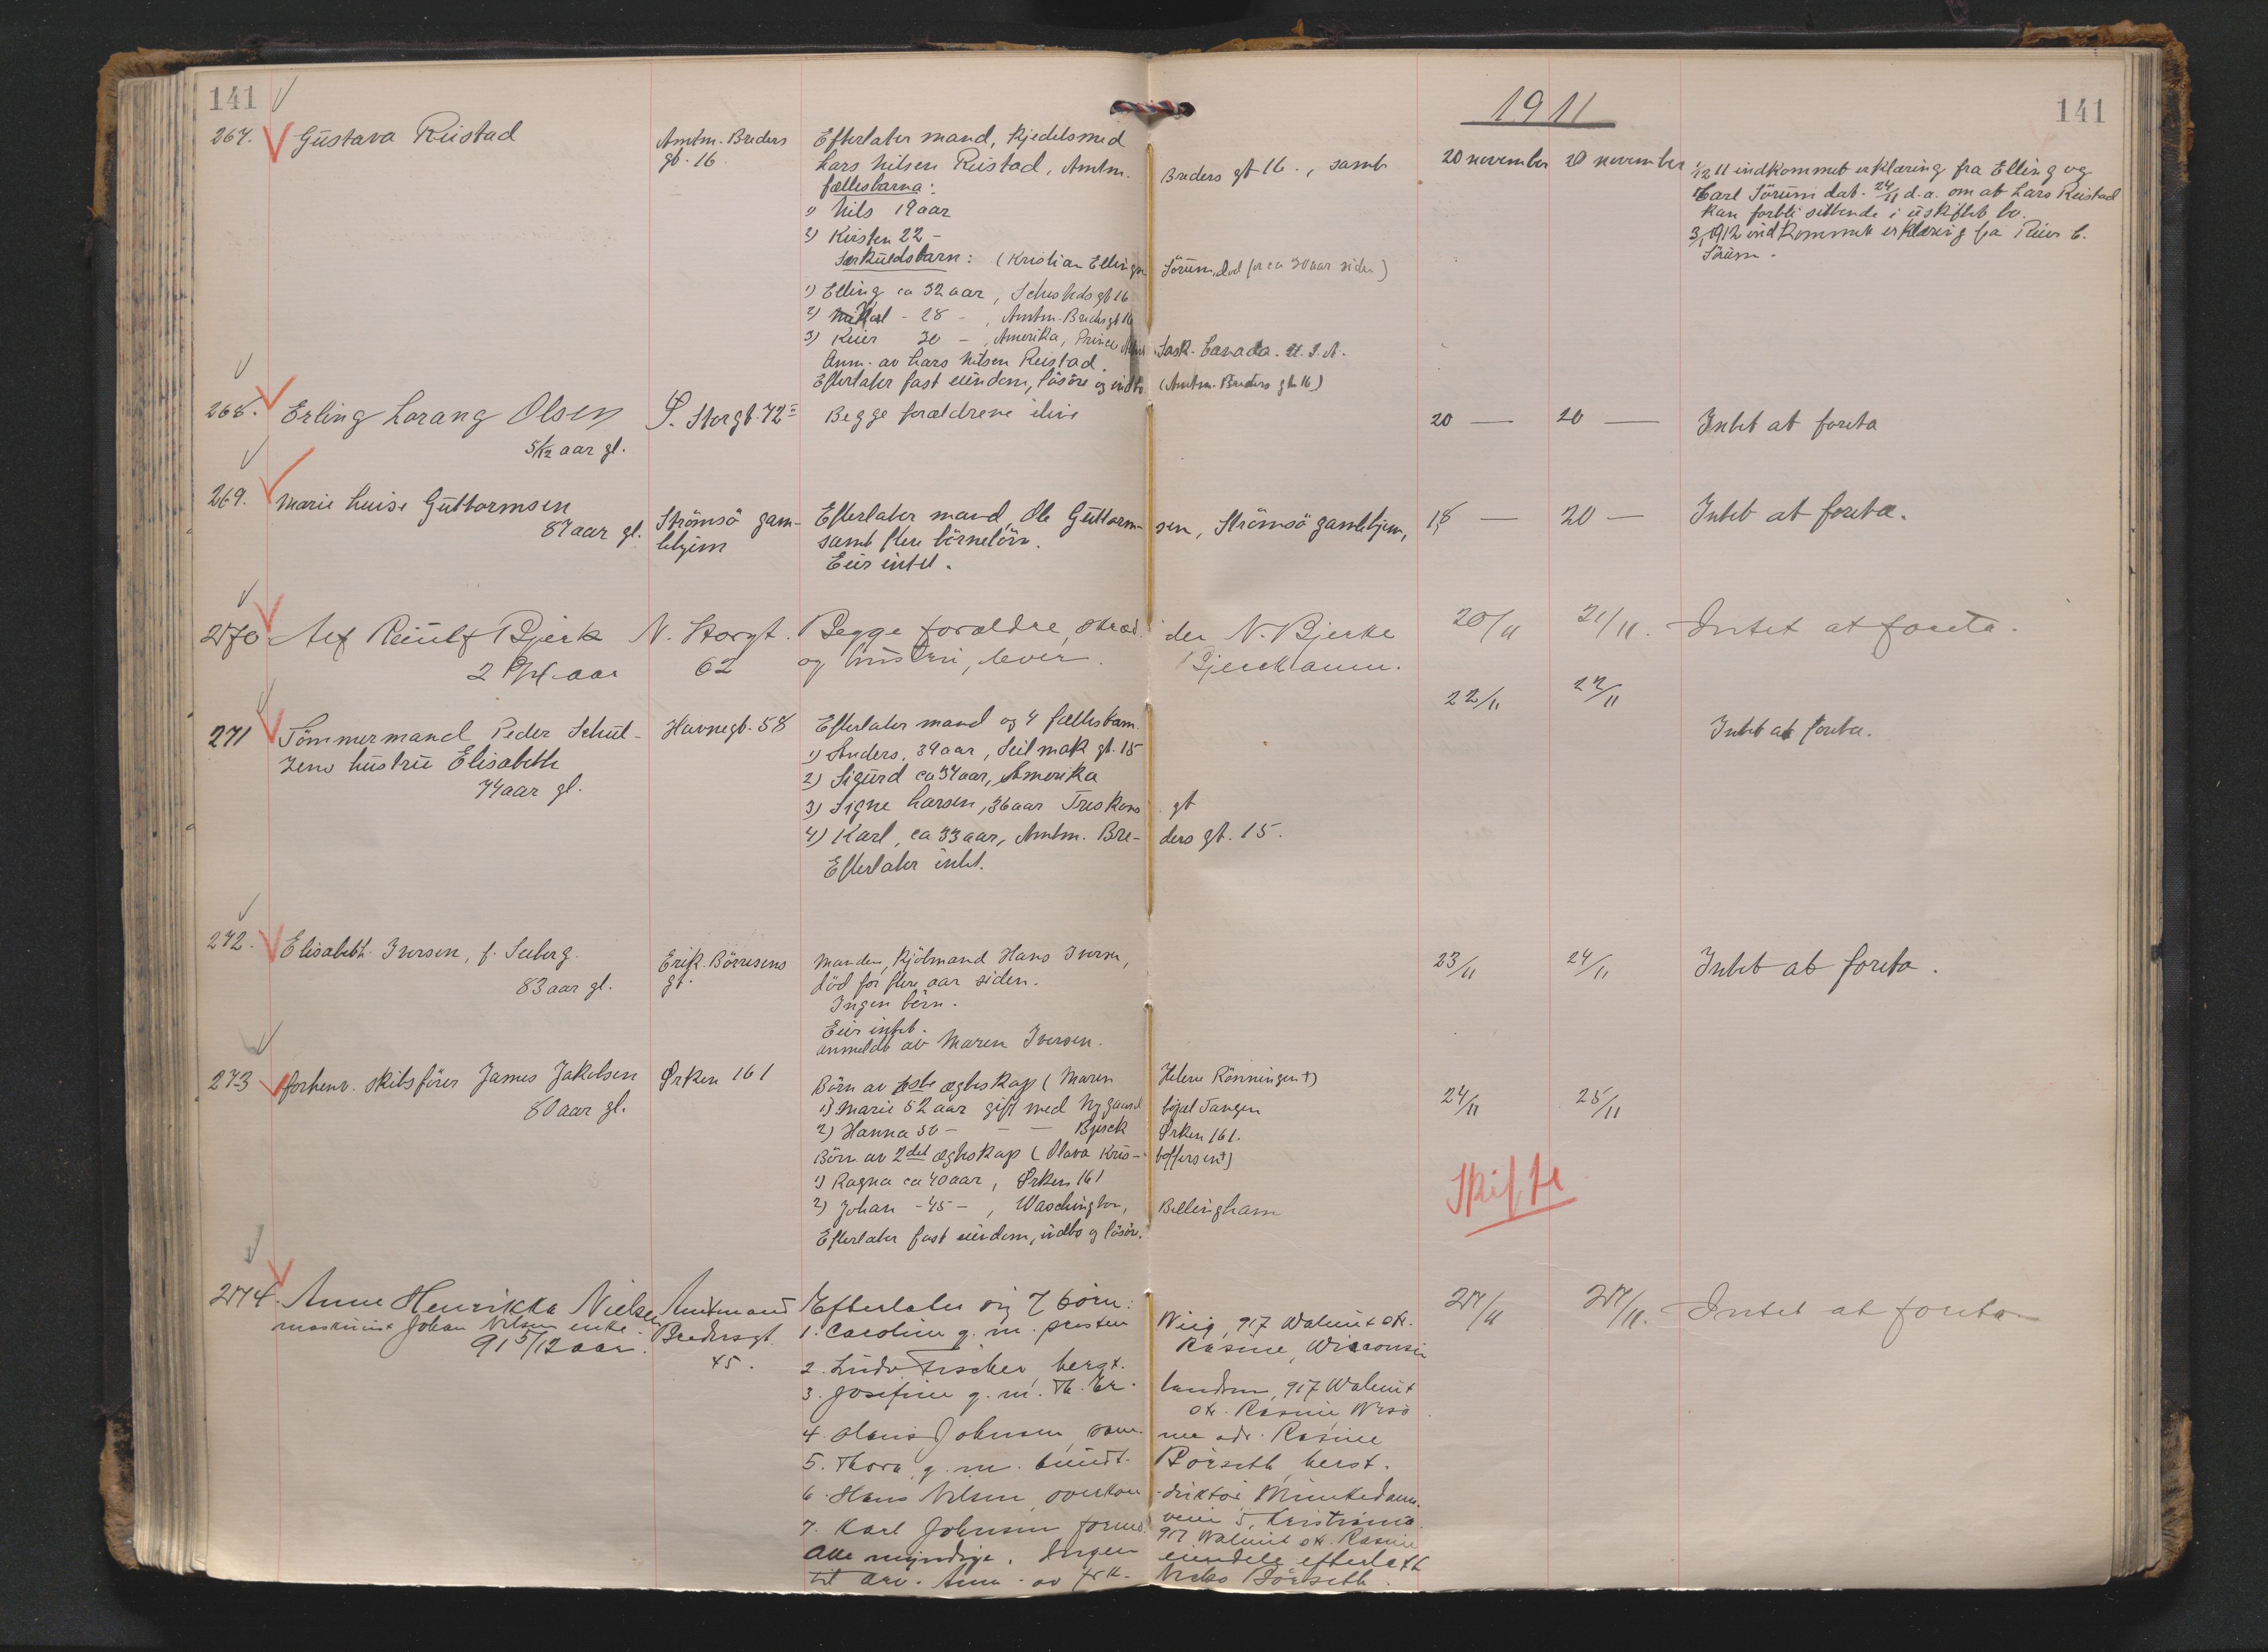 141
1911
141
267. Gustava Reistad
Amtm. Breders
gt. 16
Efterlater mand, kjedelsmed
Lars Nilsen Reistad, Amtm. Breders gt 16., samt
fællesbarna:
1) Nils 19 aar
2) Kirsten 22 -
Særkuldsbarn: (Kristian Ellingsen Sörum, död for ca 30 aar siden)
1) Elling ca 32 aar, gt 16
2) Karl - 28 - , Amtm. Breders gt 16
3) Reier 30 - , Amerika, Prince Albert Sask. Canada. U. S. A.
Anm. av Lars Nilsen Reistad. (Amtm. Breders gt. 16)
Efterlater fast eiendom, lösöre og indbo
20 november 20 november
1/12 11 indkommet erklæring fra Elling og
Carl Sörum dat. 24/11 d.a. om at Lars Reistad
kan forbli sittende i uskiftet bo.
3/1 1912 indkommet erklæring fra Reier C.
Sörum.
268. Erling Lorang Olsen
5/12 aar gl.
S. Storgt. 72
Begge forældrene ilive
20 — 20 — Intet at foreta
269. Marie Luise Guttormsen
87 aar gl.
Strömsö gam-
lehjem
Efterlater mand Ole Guttorm- sen, Strömsö gamlehjem,
samt flere börnebörn.
Eier intet.
18 — 20 — Intet at foreta.
270 Alf Reinulf Bjerk
2 aar
N. Storgt.
62
Begge forældre, skræd- der N. Bjerke
og hustru, lever. Bjerck anm.
20/11 21/11. Intet at foreta.
271 Tömmermand Peder Schul-
zens hustru Elisabeth
74 aar gl.
Havnegt. 58
Efterlater mand og 4 fællesbarn.
1) Anders, 39 aar, Seilmak gt. 15
2) Sigurd ca 34 aar, Amerika
3) Signe Larsen, 36 aar Treskens gt
4) Karl, ca 33 aar, Amtm. Bre- ders gt. 15.
Efterlater intet.
22/11 22/11
Intet at foreta.
272. Elisabeth Iversen, f. Seeberg.
83 aar gl.
Erik Börresens
gt.
Manden, kjölmand Hans Iversen,
död for flere aar siden.
Ingen börn.
Eier intet.
anmeldt av Maren Iversen.
23/11 24/11 Intet at foreta.
273 forhenv. skibsförer James Jakobsen
80 aar gl.
Ørken 161
Börn av 1ste egteskap (Maren Helene Rönningen †)
1) Marie 52 aar gift med Nygaard bopæl Tangen
2) Hanna 50 - - — Bjerck Ørken 161.
Börn av 2det egteskap (Olava Kris- toffersen †)
1) Ragna ca 40 aar, Ørken 161
2) Johan - 45 - , Waschington, Bellingham
Efterlater fast eiendom, indbo og lösöre.
24/11 25/11
Skifte
274. Anne Henrikke Nielsen
maskinist Johan Nilsens enke.
91 5/12 aar.
Amtmand
Bredersgt.
45.
Efterlater sig 7 börn:
1. Caroline g. m. presten Wiig, 917 Walnut str.
Rasine, Wisconsin
2. Ludv. Fischer, bergt.
3. Josefine g. m. Th. Er- landsen, 917 Walnut
str. Rasine Wiso
4. Johnsen, sam- me adr. Rasine
5. Thora, g. m. Börseth, herst.
6. Hans Nilsen, overkon- duktör, Munkedams-
veien 5, Kristiania
7. Karl Johnsen, 917 Walnut str. Rasine
Alle myndige. Ingen eiendele efterlatt
til arv. Anm. av frk. Börseth.
27/11 27/11. Intet at foreta.